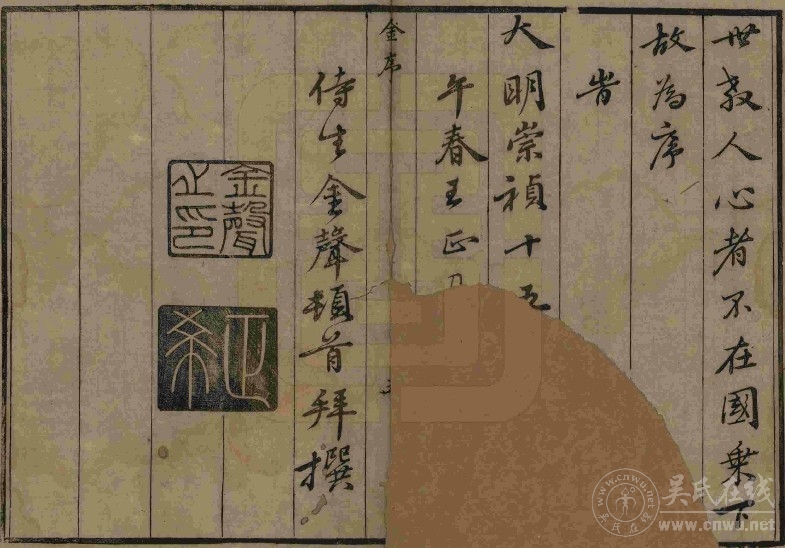 世教人心者不在國乗下
故為序
旹
大明崇禎十五
午春王正月
金序
侍生金聲頓首拜撰
金聲之印
正希
吴氏在线
www.cnwu.net